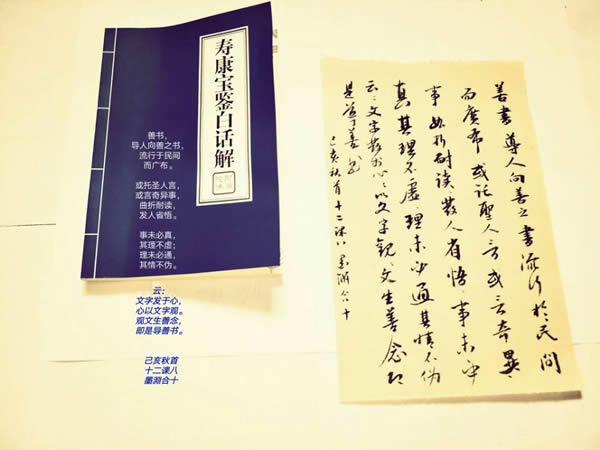 寿康宝鉴白话解
善书，
导人向善之书，
流行于民间
而广布。
或托圣人言，
或言奇异事，
曲折耐读，
发人省悟。
事未必真，
其理不虚；
理未必通，
其情不伪。
云：
文字发于心，
心以文字观。
观文生善念，
即是导善书。
己亥秋首
十二课八
墨淵合十
善書 導人向善之書 流行於民间
而廣布 或託聖人言 或言奇異
事 曲折耐读 發人省悟 事未必
真 其理不虚 理未必通 其情不伪
云：文字發於心〻以文字觀〻文生善念即
是導善書
己亥秋首十二课八 墨渊合十